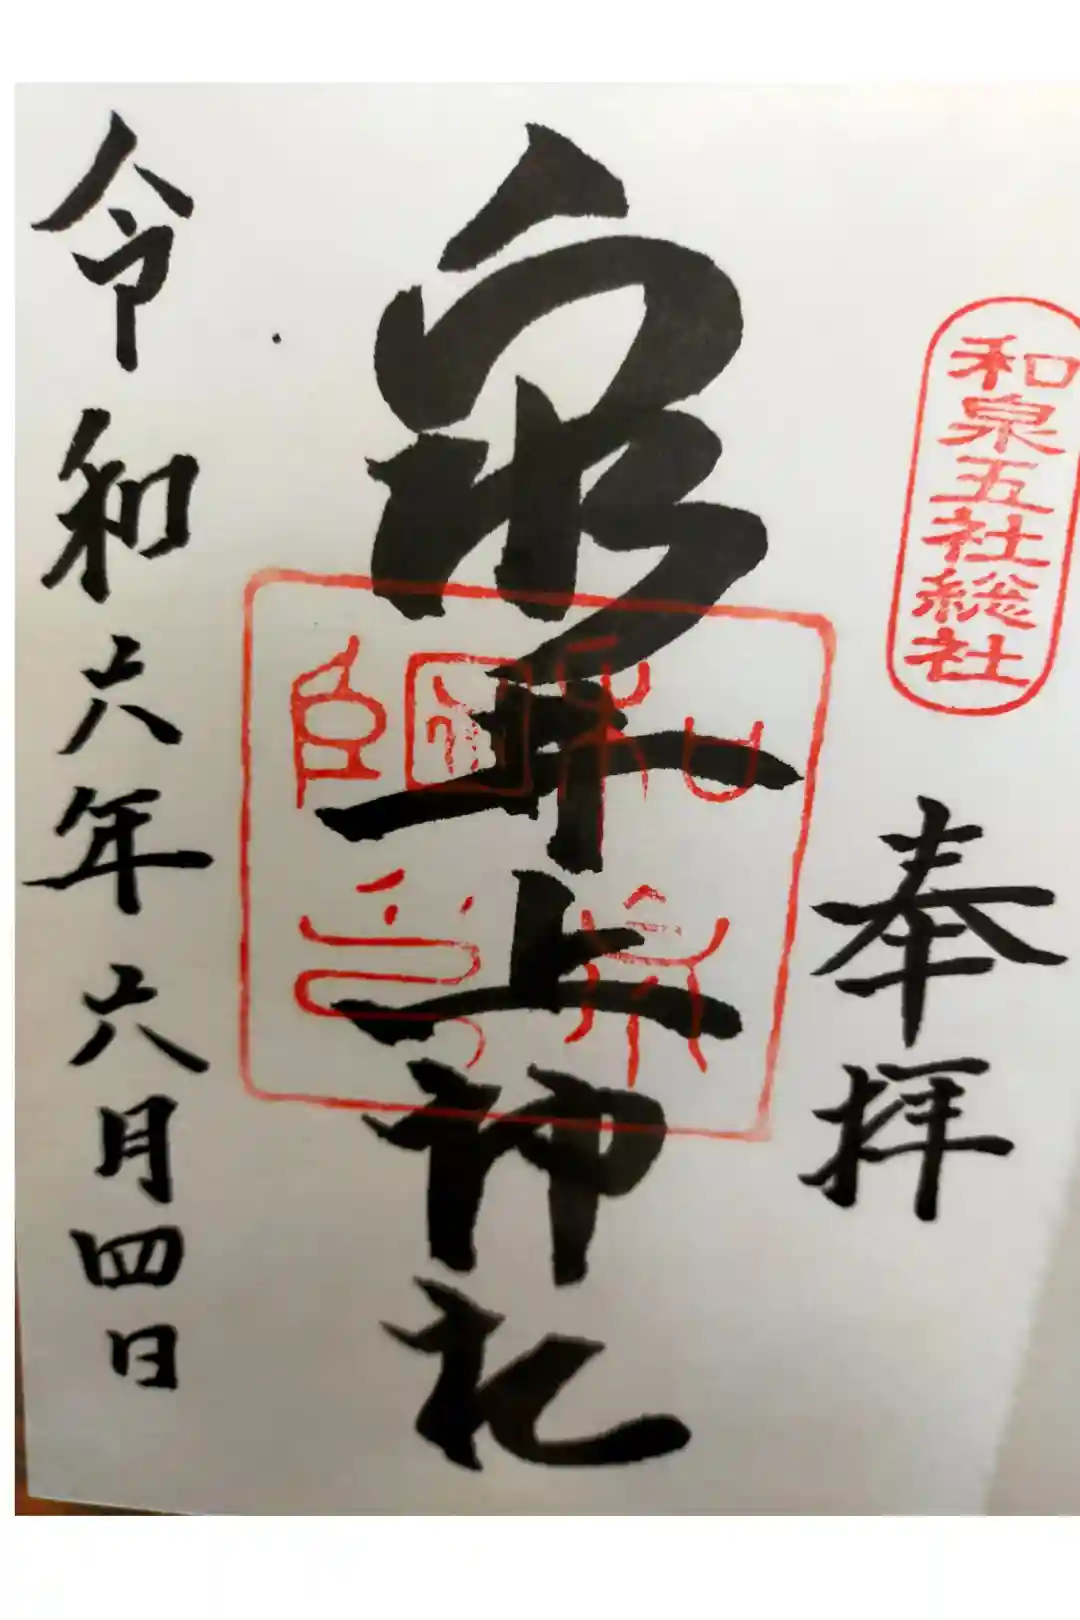 和泉五社総社
奉拝
泉井上神社
令和六年六月四日